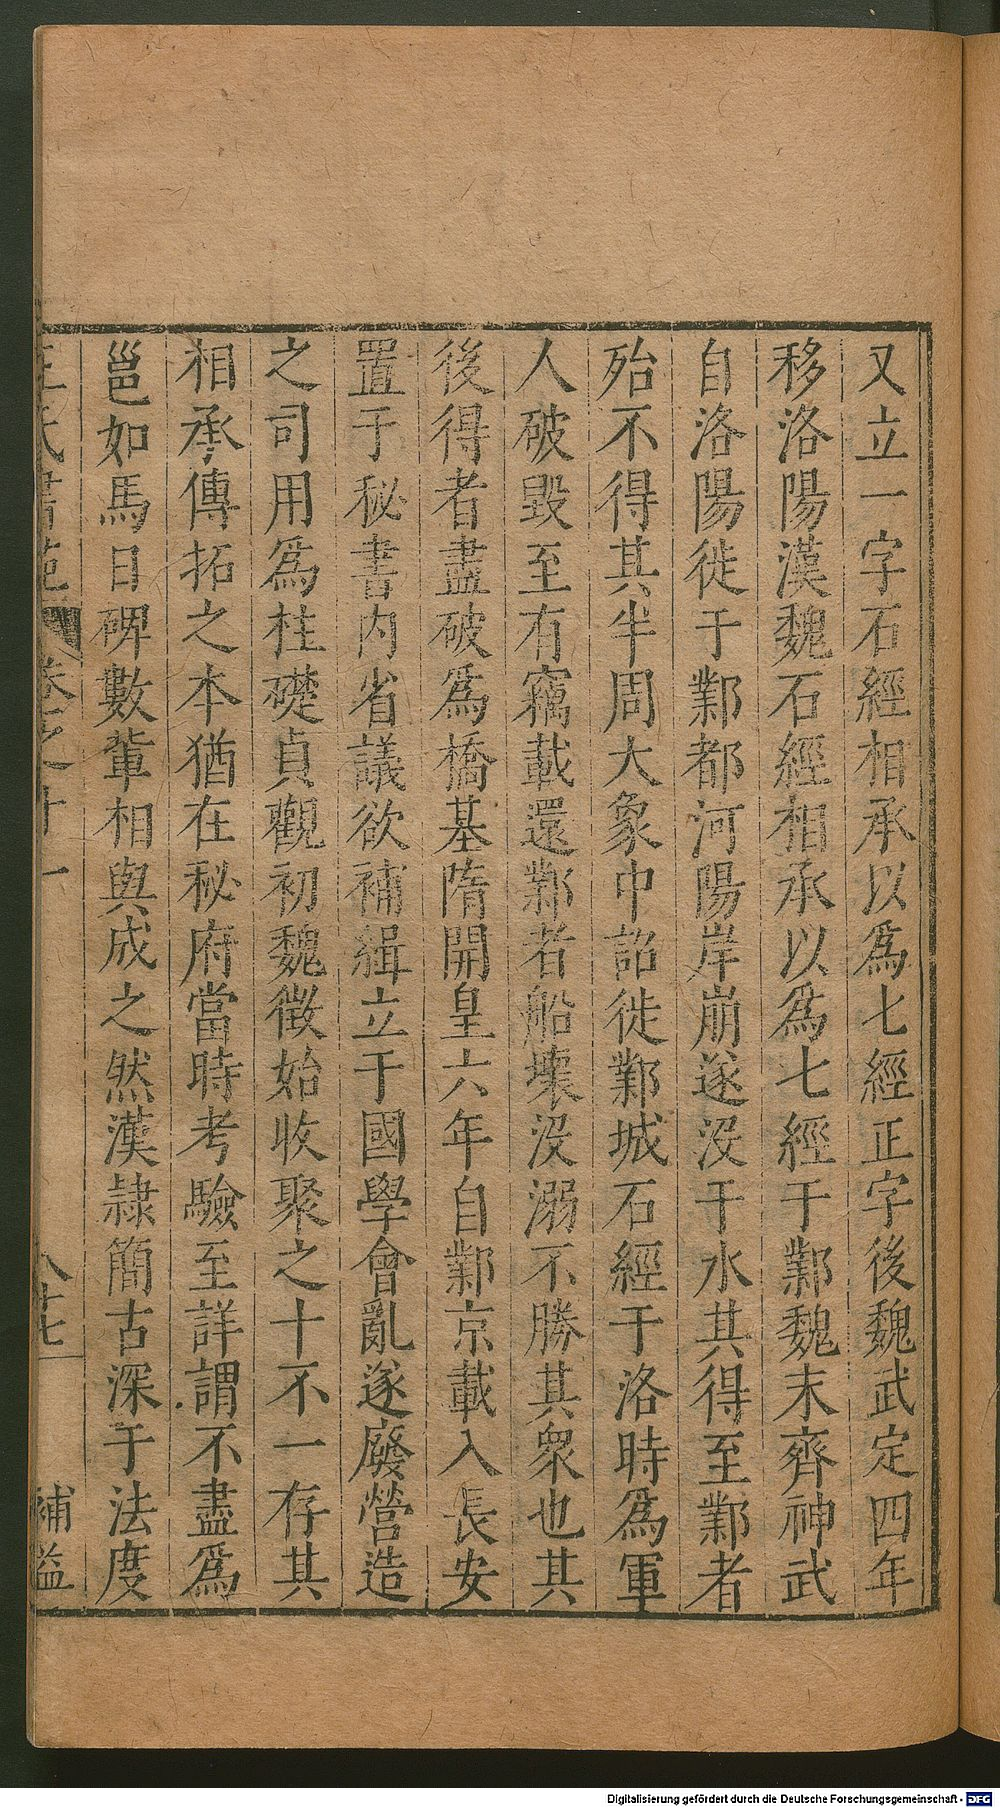 又立一字石經相承以爲七經正字後魏武定四年
移洛陽漢魏石經相承以爲七經于鄴魏末齊神武
自洛陽徙于鄴都河陽岸崩遂没于水其得至鄴者
殆不得其半周大象中詔徙鄴城石經于洛時爲軍
人破毀至有竊載還鄴者船壞没溺不勝其衆也其
後得者盡破爲橋基隋開皇六年自鄴京載入長安
置于秘書内省議欲補緝立于國學會亂遂廢營造
之司用爲柱礎貞觀初魏徵始收聚之十不一存其
相承傳拓之本猶在秘府當時考驗至詳謂不盡爲
邕如馬日磾數輩相與成之然漢隷簡古深于法度
氏書苑 卷之十一 補益
Digitalisierung gefördert durch die Deutsche Forschungsgemeinschaft - DFG